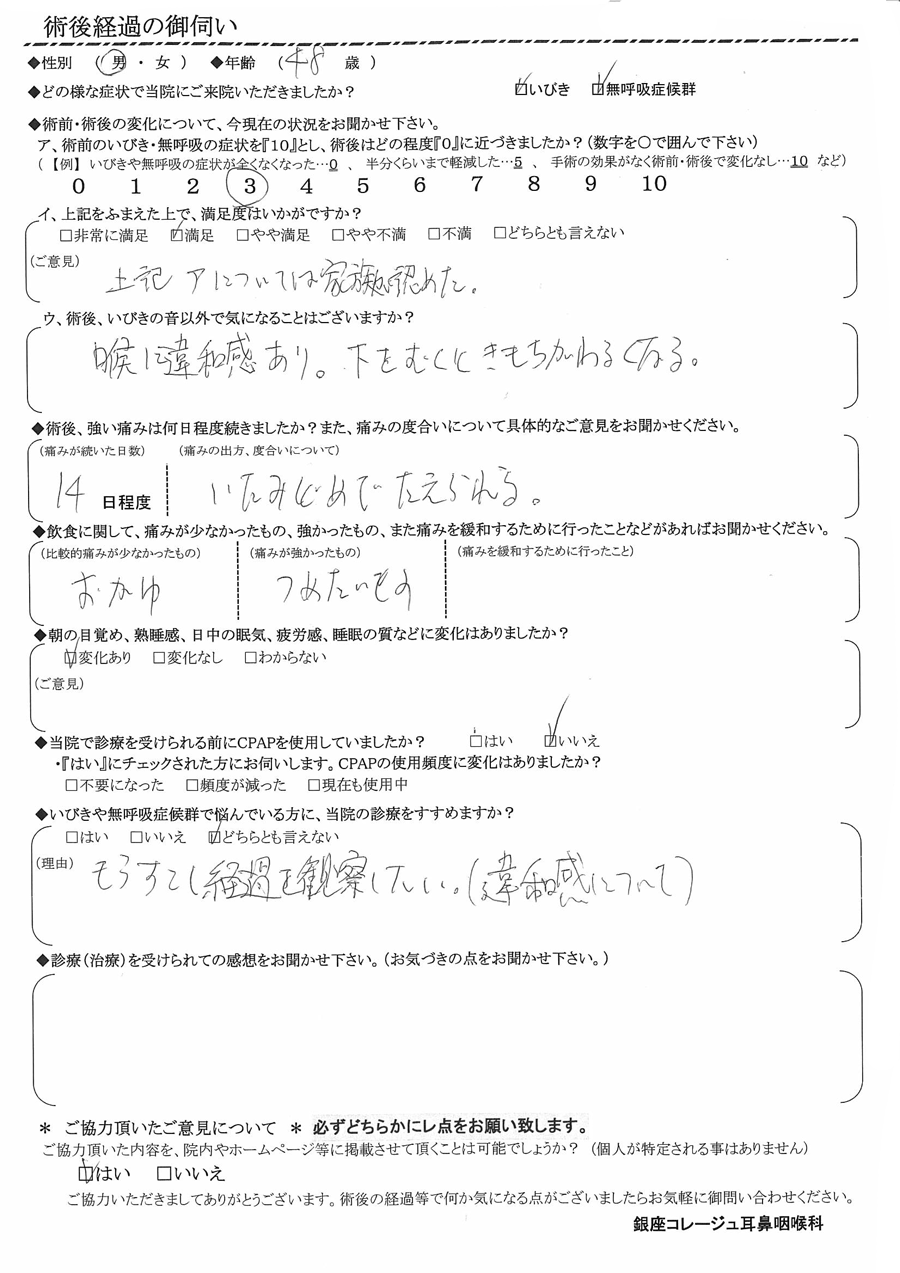 術後経過の御伺い
◆性別 （ 男 ・ 女 ） ◆年齢 （ 48 歳 ）
◆どの様な症状で当院にご来院いただきましたか？ ☑いびき ☑無呼吸症候群
◆術前・術後の変化について、今現在の状況をお聞かせ下さい。
ア、術前のいびき・無呼吸の症状を『10』とし、術後はどの程度『0』に近づきましたか？（数字を○で囲んで下さい）
（【例】 いびきや無呼吸の症状が全くなくなった…0 、 半分くらいまで軽減した…5 、 手術の効果がなく術前・術後で変化なし…10 など）
0 1 2 3 4 5 6 7 8 9 10
イ、上記をふまえた上で、満足度はいかがですか？
□非常に満足 ☑満足 □やや満足 □やや不満 □不満 □どちらとも言えない
（ご意見）
上記 アについては家族も認めた。
ウ、術後、いびきの音以外で気になることはございますか？
喉に違和感あり。下をむくときもちがわるくなる。
◆術後、強い痛みは何日程度続きましたか？また、痛みの度合いについて具体的なご意見をお聞かせください。
（痛みが続いた日数） （痛みの出方、度合いについて）
14 日程度 いたみどめでたえられる。
◆飲食に関して、痛みが少なかったもの、強かったもの、また痛みを緩和するために行ったことなどがあればお聞かせください。
（比較的痛みが少なかったもの） （痛みが強かったもの） （痛みを緩和するために行ったこと）
おかゆ つめたいもの
◆朝の目覚め、熟睡感、日中の眠気、疲労感、睡眠の質などに変化はありましたか？
☑変化あり □変化なし □わからない
（ご意見）
◆当院で診療を受けられる前にCPAPを使用していましたか？ □はい ☑いいえ
・『はい』にチェックされた方にお伺いします。CPAPの使用頻度に変化はありましたか？
□不要になった □頻度が減った □現在も使用中
◆いびきや無呼吸症候群で悩んでいる方に、当院の診療をすすめますか？
□はい □いいえ ☑どちらとも言えない
（理由） もうすこし経過を観察したい。（違和感について）
◆診療（治療）を受けられての感想をお聞かせ下さい。（お気づきの点をお聞かせ下さい。）
＊ ご協力頂いたご意見について ＊ 必ずどちらかにレ点をお願い致します。
ご協力頂いた内容を、院内やホームページ等に掲載させて頂くことは可能でしょうか？ （個人が特定される事はありません）
☑はい □いいえ
ご協力いただきましてありがとうございます。術後の経過等で何か気になる点がございましたらお気軽に御問い合わせください。
銀座コレージュ耳鼻咽喉科